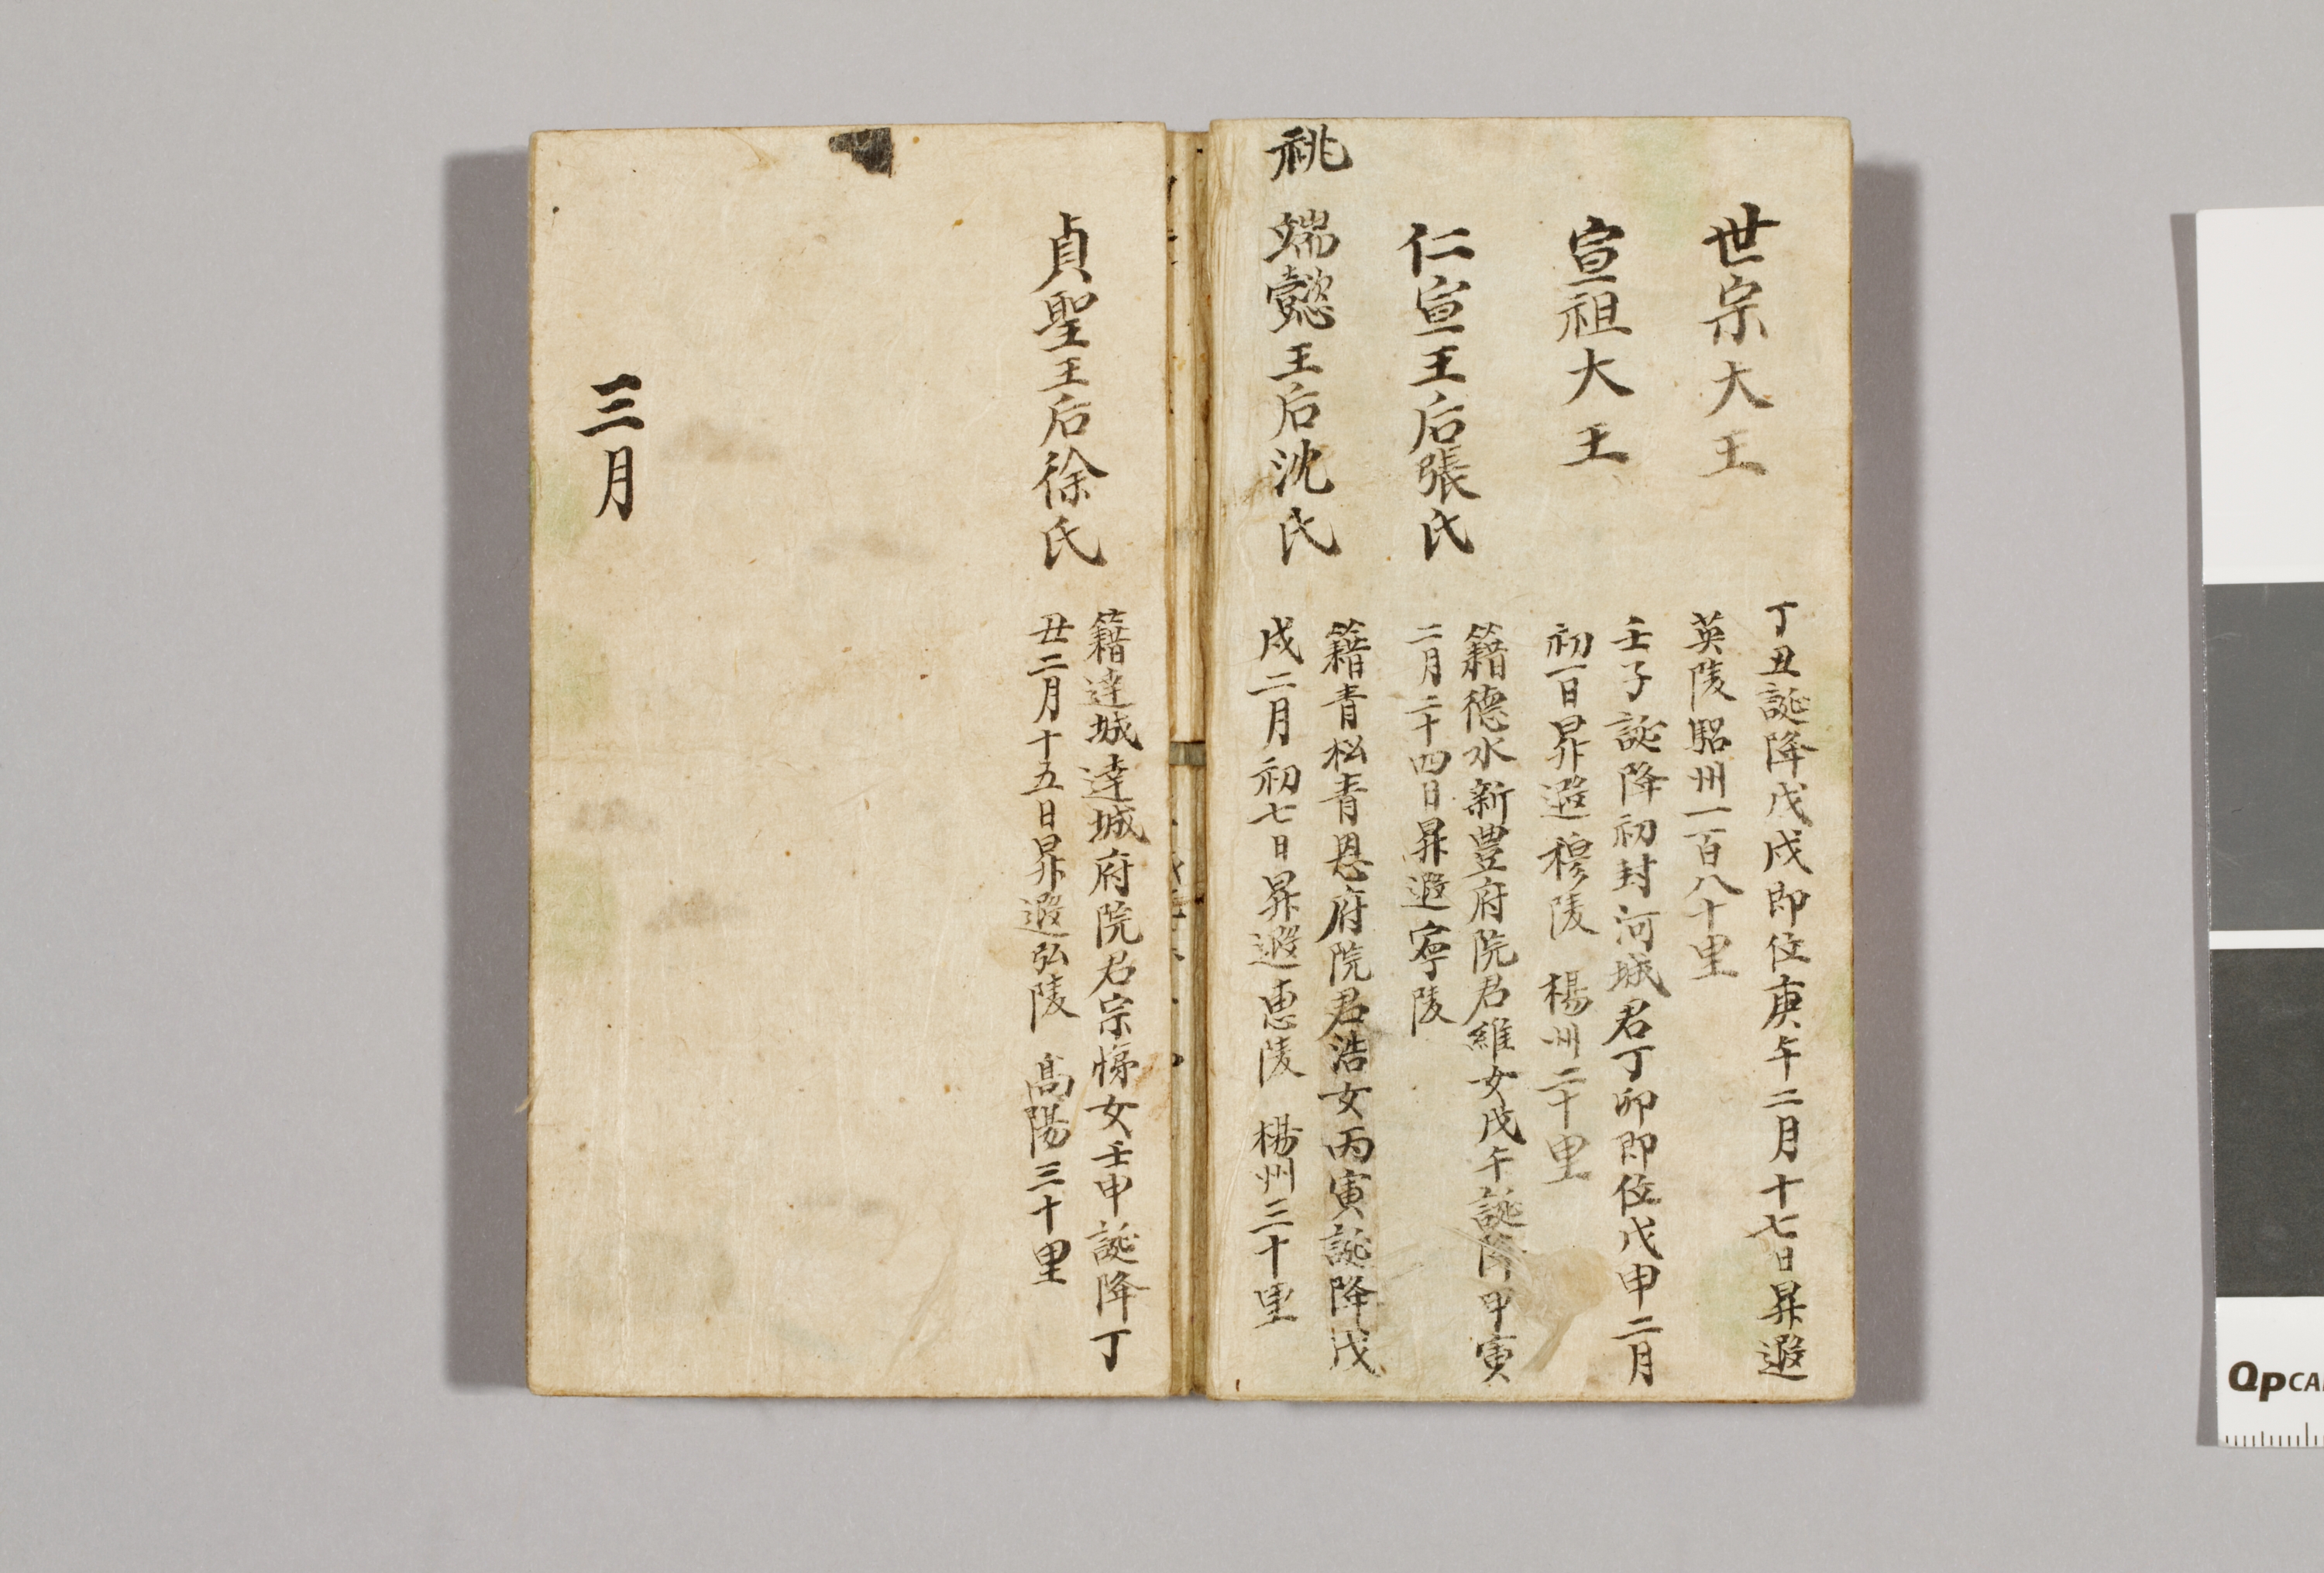 世宗大王
丁丑誕降戊戌即位庚午二月十七日昇遐
英陵驪州一百八十里
宣祖大王
壬子誕降初封河城君丁卯即位戊申二月
初一日昇遐穆陵 楊州二十里
仁宣王后張氏
籍德水新豊府院君維女戊午誕降甲寅
二月二十四日昇遐寧陵
祧 端懿王后沈氏
籍青松青恩府院君浩女丙寅誕降戊
戌二月初七日昇遐惠陵 楊州三十里
貞聖王后徐氏
籍達城達城府院君宗悌女壬申誕降丁
丑二月十五日昇遐弘陵 高陽三十里
三月
QpCA